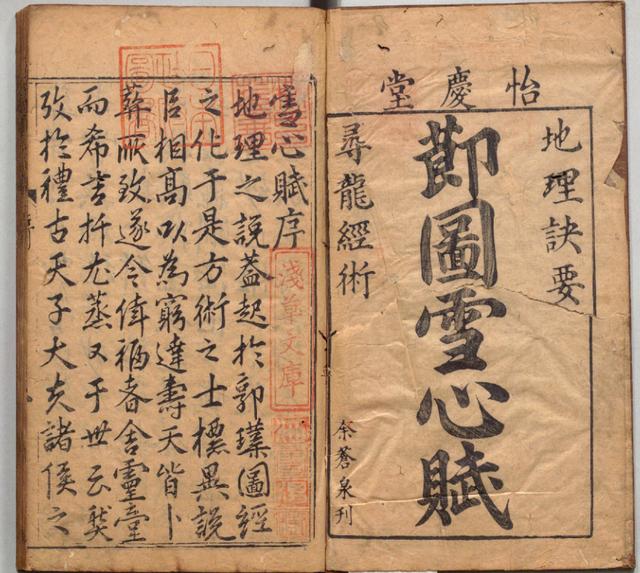 怡慶堂
地理訣要
節圖雪心賦
尋龍經術
余蒼泉刊
雪心賦序
地理之說蓋起於郭璞圖經
之化于是方術之士標異說
巨相高以為窮達壽夭皆卜
葬所致遂令偉福舂舍靈臺
而希吉扞尤蒸又于世云獘
攷於禮古天子大夫諸侯之
淺草文庫